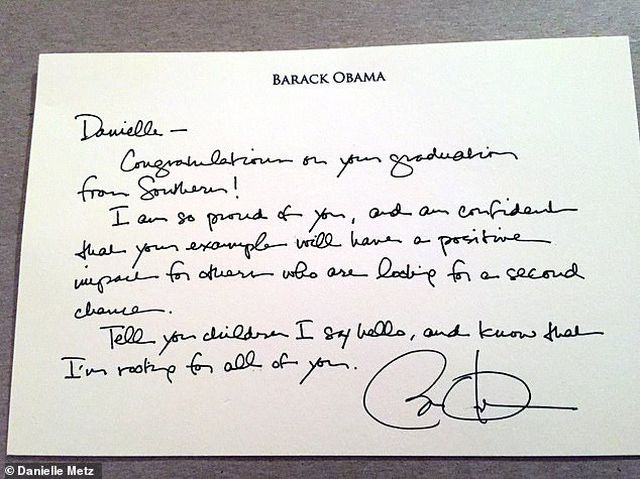 BARACK OBAMA
Danielle —
Congratulations on your graduation
from Southern!
I am so proud of you, and am confident
that your example will have a positive
impact for others who are looking for a second
chance.
Tell your children I say hello, and know that
I'm rooting for all of you.
© Danielle Metz